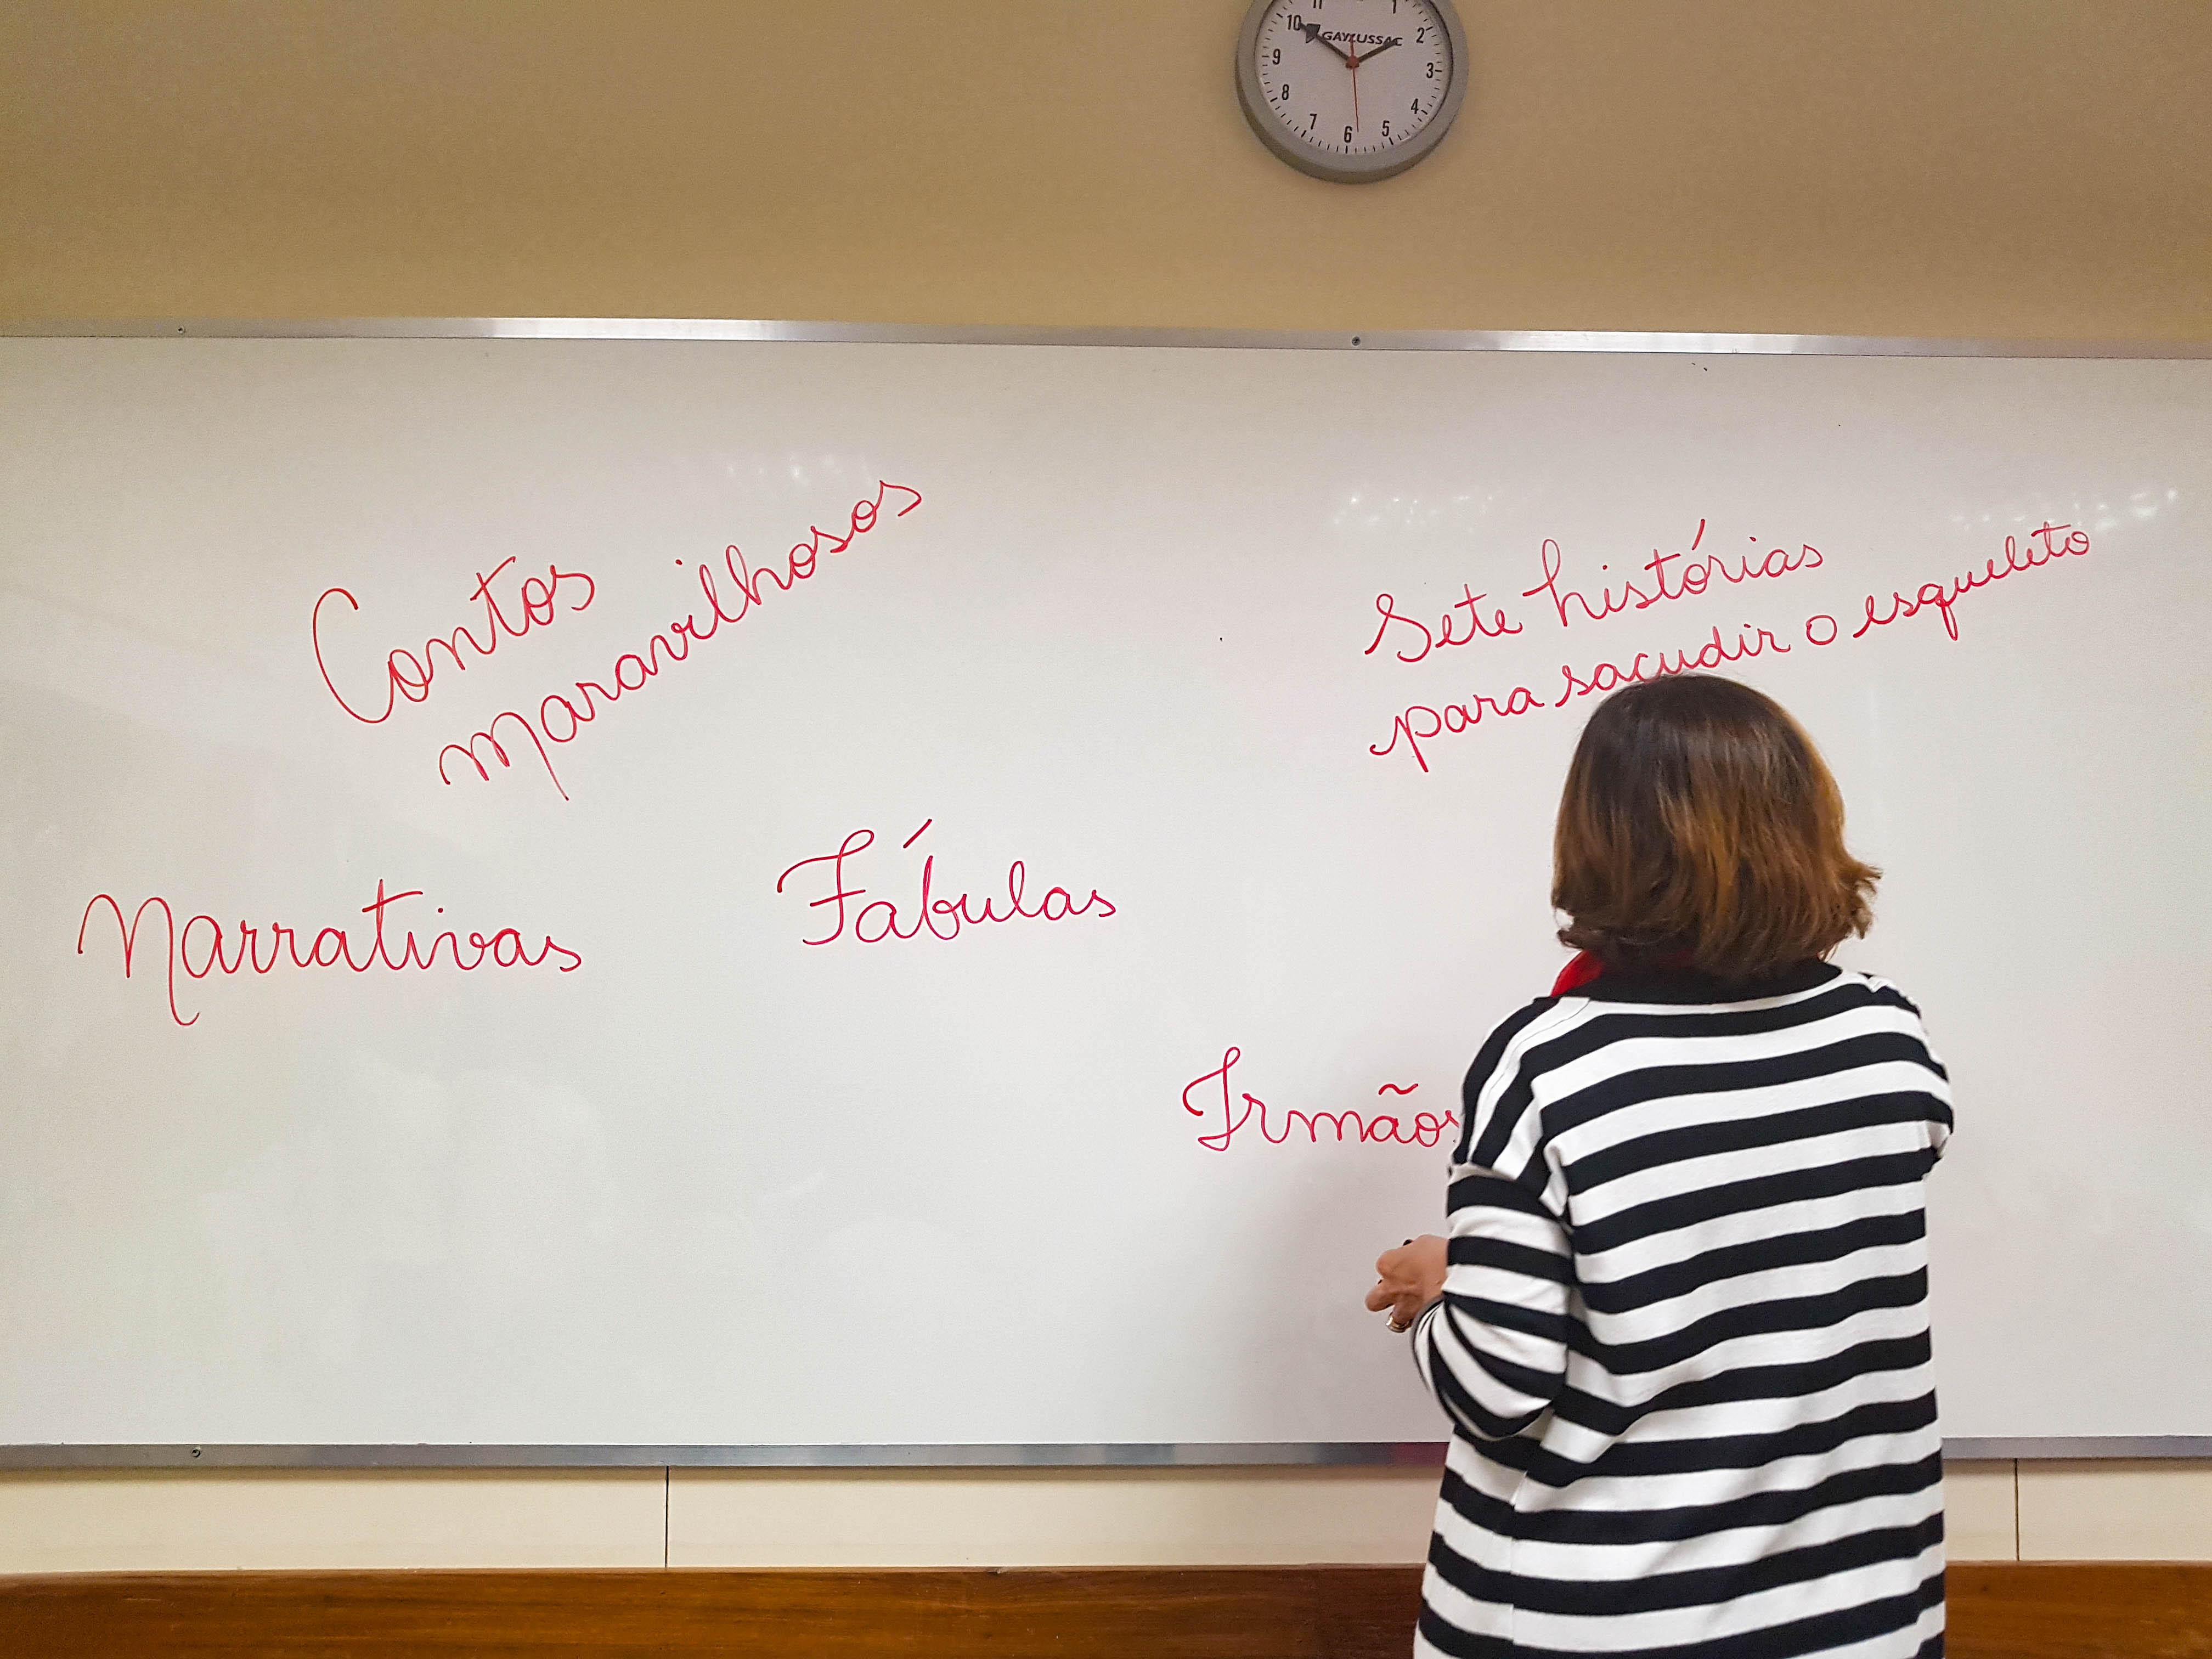 11 1
10 2
GAYLUSSAC
9 3
8 4
7 5
6
Contos
maravilhosos
Sete histórias
para sacudir o esqueleto
Narrativas
Fábulas
Irmãos